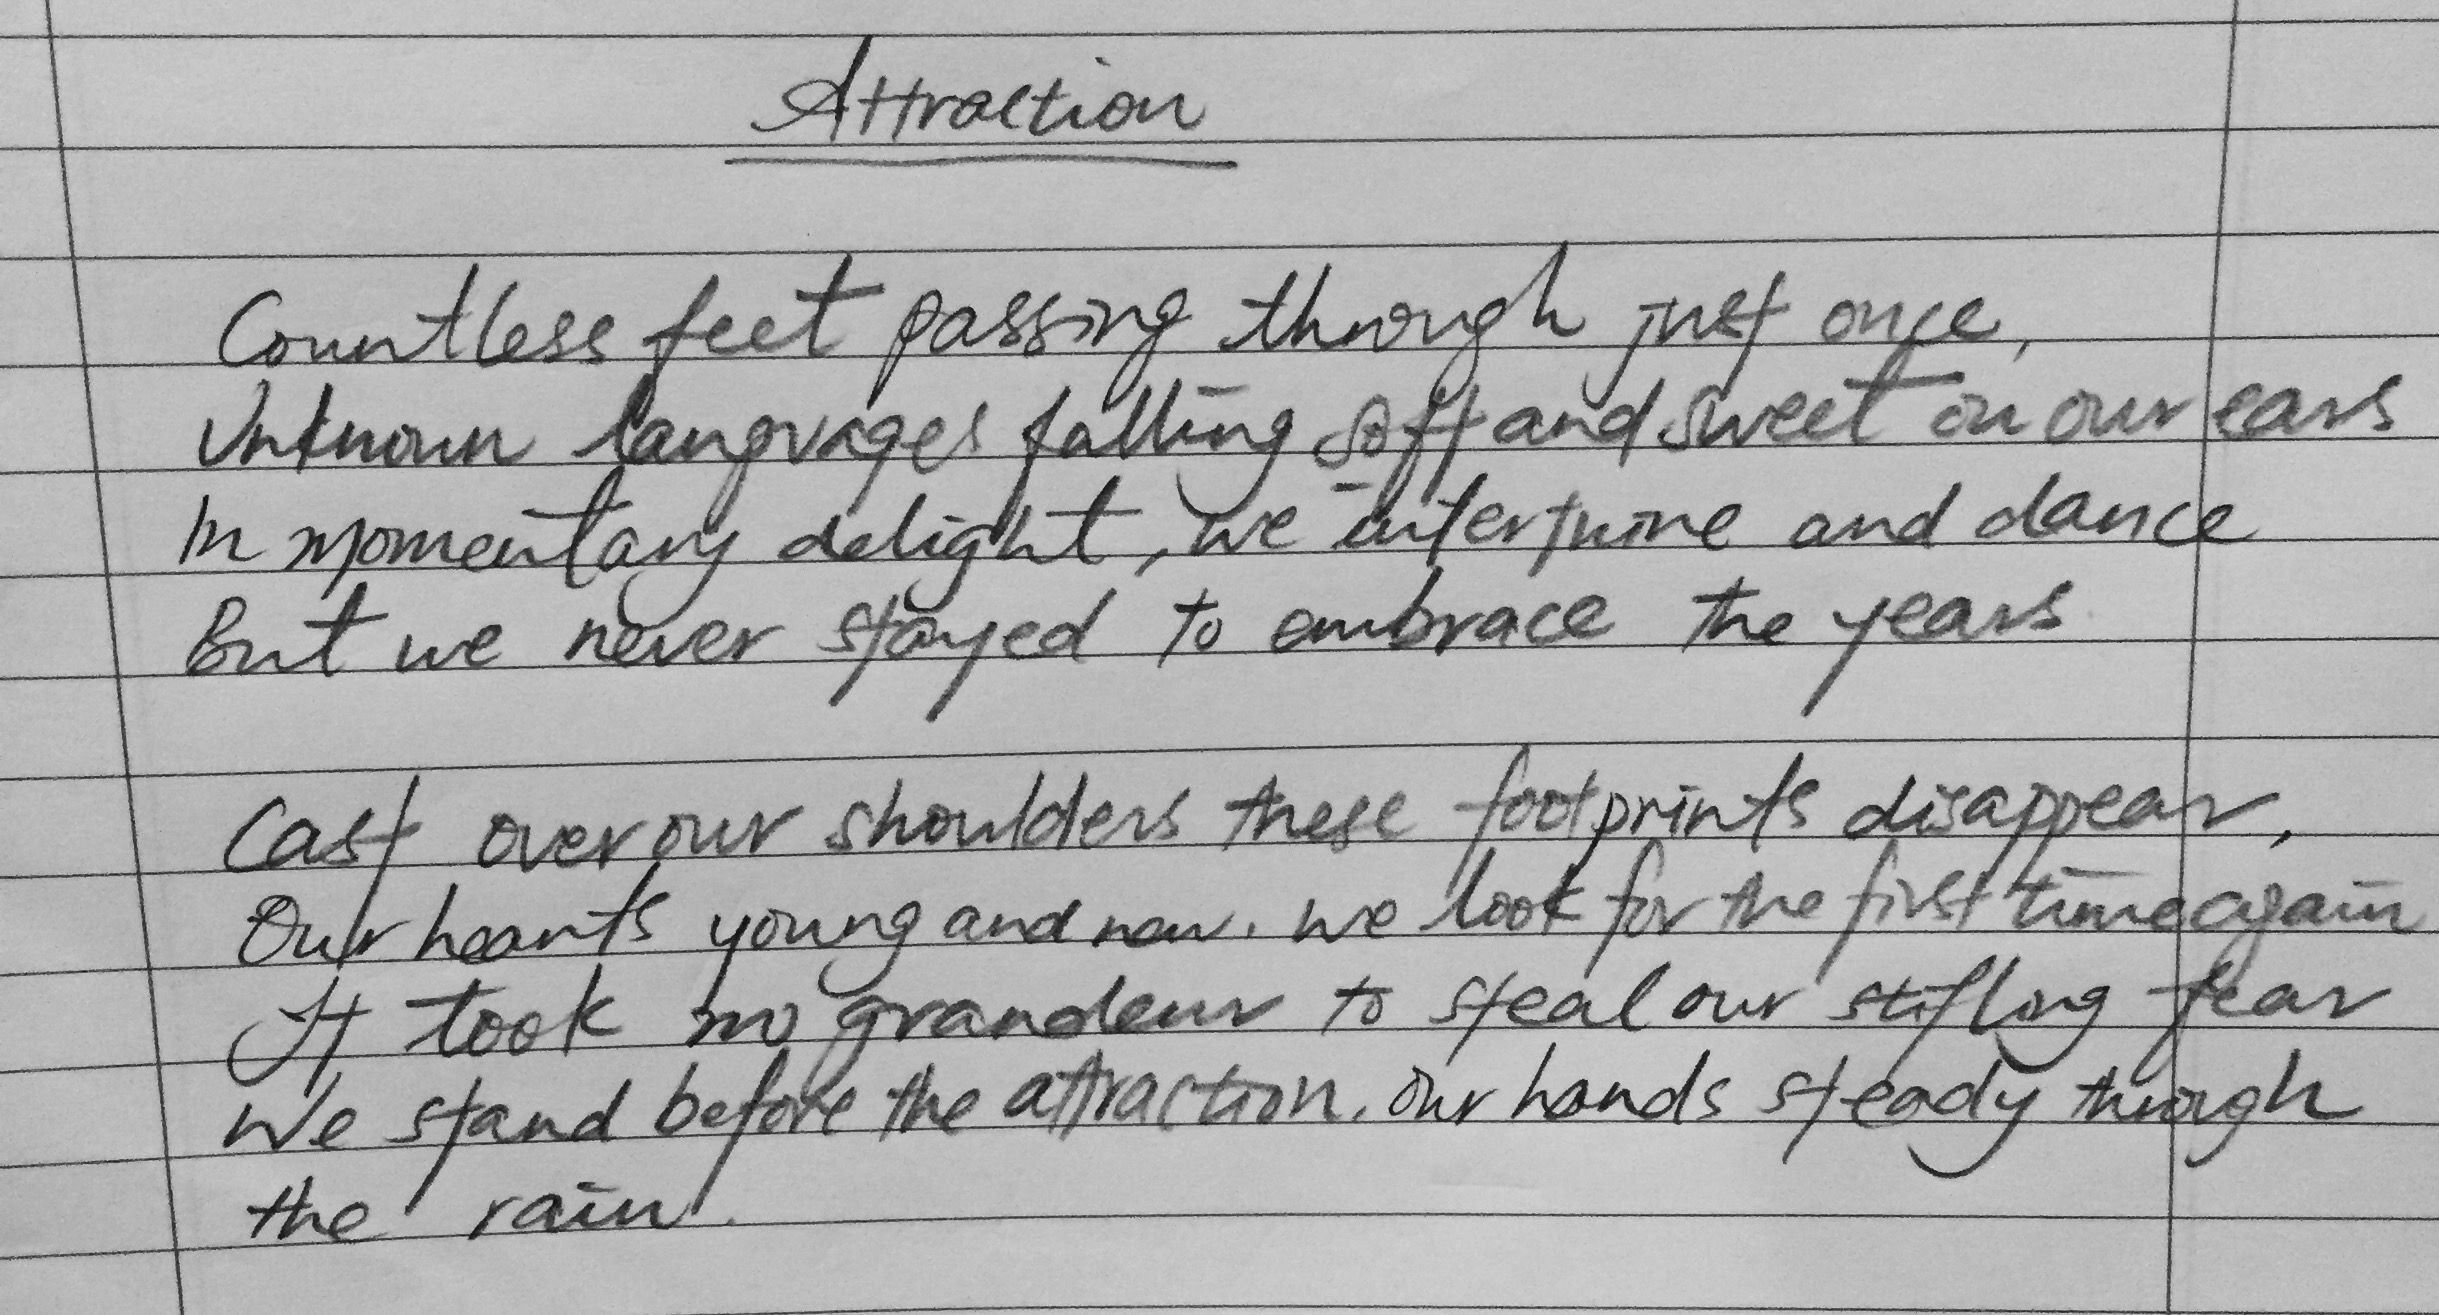 Attraction
Countless feet passing through just once,
Unknown languages falling soft and sweet on our ears
In momentary delight, we intertwine and dance
But we never stayed to embrace the years
Cast over our shoulders these footprints disappear,
Our hearts young and new. we look for the first time again
It took no grandeur to steal our stifling fear
We stand before the attraction. our hands steady through
the rain.